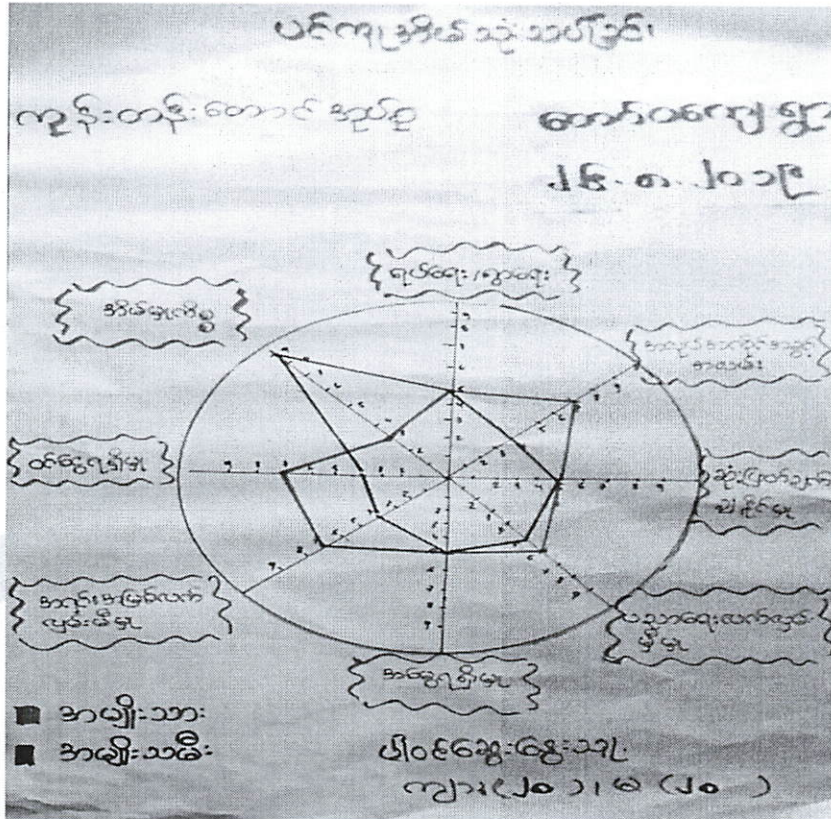 ပင့်ကူအိမ်သုံးသပ်ခြင်း
ကွန်းတန်းတောင် အုပ်စု
ရွာ
၂၆.၈.၂၀၁၉
ရပ်ရေး/ရွာရေး
အိမ်မှုကိစ္စ
အခွင့်
အလမ်း
ဝင်ငွေရရှိမှု
ဆုံးဖြတ်ချက်
ချနိုင်မှု
အရင်းအမြစ်လက်
လှမ်းမီမှု
ပညာရေးလက်လှမ်း
မှီမှု
အမွေရရှိမှု
အမျိုးသား
အမျိုးသမီး
ပါဝင်ဆွေးနွေးသူ
ကျား(၂၀)၊ မ (၂၀)